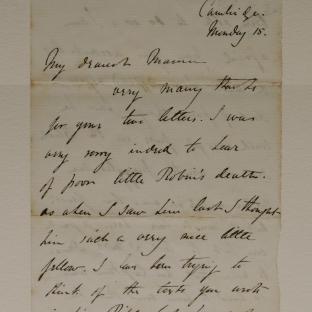 Cambridge.
Monday 15.
My dearest Mamma
very many thanks
for your two letters. I was
very sorry indeed to hear
of poor little Robin's death.
as when I saw him last I thought
him such a very nice little
fellow. I have been trying to
think of the texts you wrote